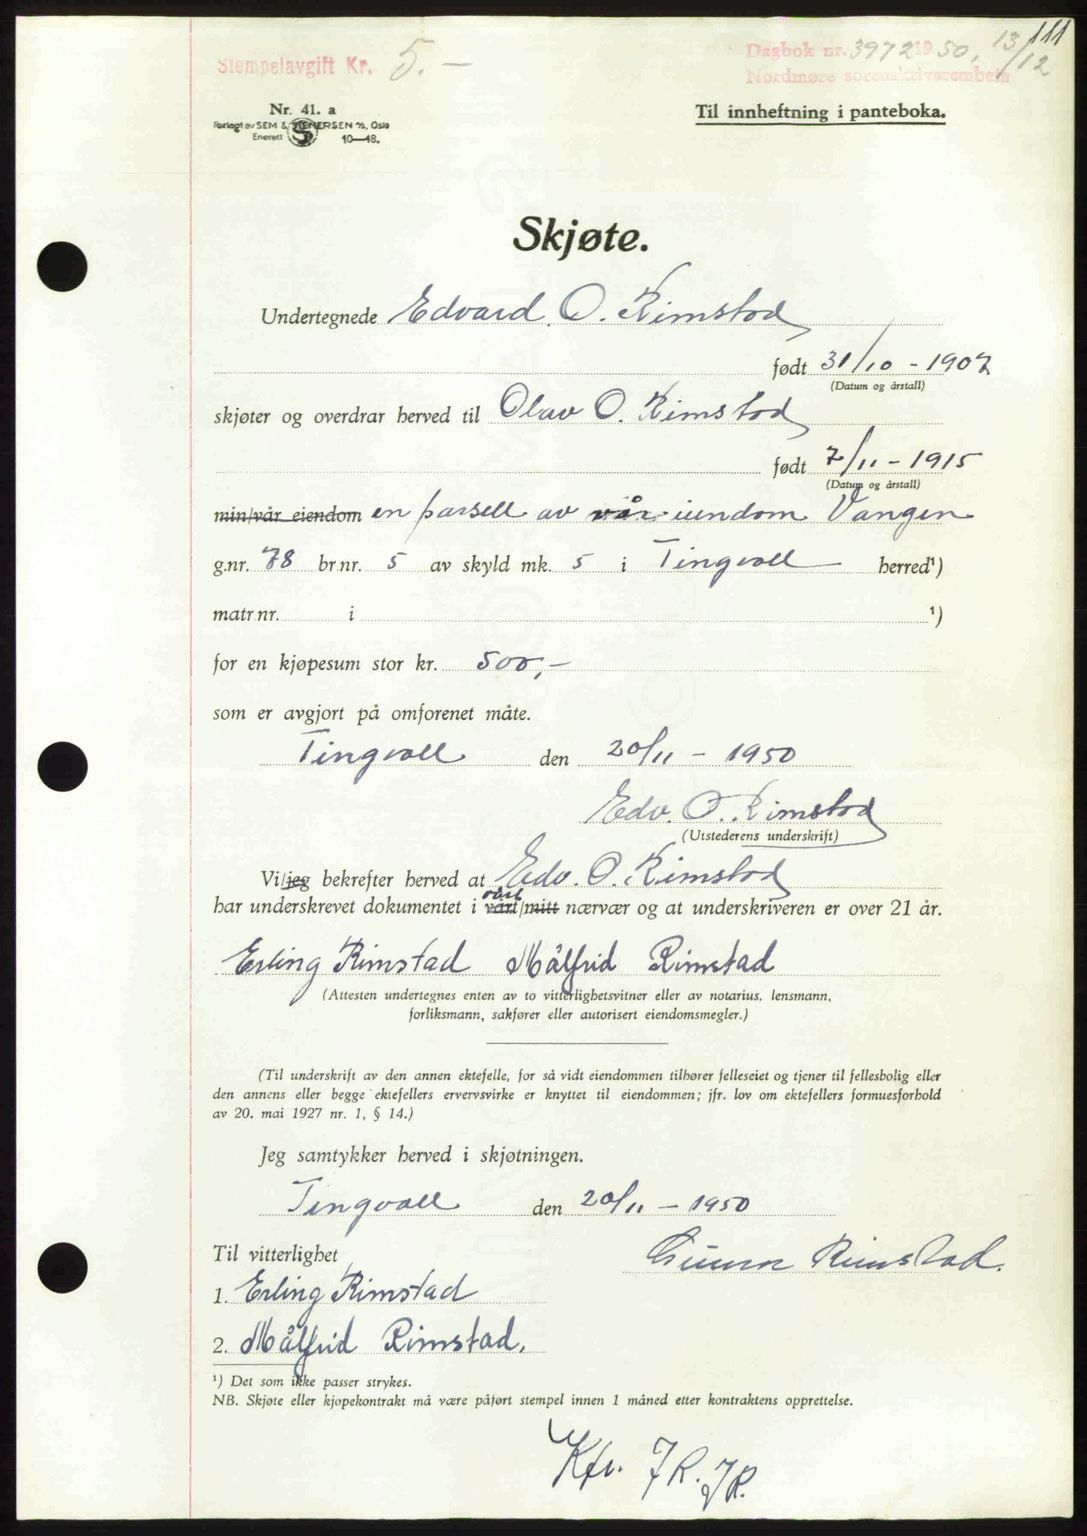 111
Stempelavgift Kr. 5.-
Dagbok nr. 3972 1950. 13/12
Nordmøre sorenskriverembete
Nr. 41. a
Forlagt av SEM & STENERSEN A/S, Oslo
Enerett 10-48.
Til innheftning i panteboka.
Skjøte.
Undertegnede Edvard O. Rimstad
født 31/10 - 1907
(Datum og årstall)
skjøter og overdrar herved til Olav O. Rimstad
født 7/11 - 1915
(Datum og årstall)
min/vår eiendom en parsell av vår eiendom Vangen
g.nr. 78 br.nr. 5 av skyld mk. 5 i Tingvoll herred¹)
matr.nr. i ¹)
for en kjøpesum stor kr. 500,-
som er avgjort på omforenet måte.
Tingvoll den 20/11 - 1950
Edv. O. Rimstad
(Utstederens underskrift)
Vi/jeg bekrefter herved at Edv. O. Rimstad
vårt
har underskrevet dokumentet i vårt/mitt nærvær og at underskriveren er over 21 år.
Erling Rimstad Målfrid Rimstad
(Attesten undertegnes enten av to vitterlighetsvitner eller av notarius, lensmann,
forliksmann, sakfører eller autorisert eiendomsmegler.)
(Til underskrift av den annen ektefelle, for så vidt eiendommen tilhører felleseiet og tjener til fellesbolig eller
den annens eller begge ektefellers ervervsvirke er knyttet til eiendommen; jfr. lov om ektefellers formuesforhold
av 20. mai 1927 nr. 1, § 14.)
Jeg samtykker herved i skjøtningen.
Tingvoll den 20/11 - 1950
Til vitterlighet
Gunn Rimstad.
1. Erling Rimstad
2. Målfrid Rimstad.
¹) Det som ikke passer strykes.
NB. Skjøte eller kjøpekontrakt må være påført stempel innen 1 måned etter kontraktens opprettelse.
Kfr. JR. JR.